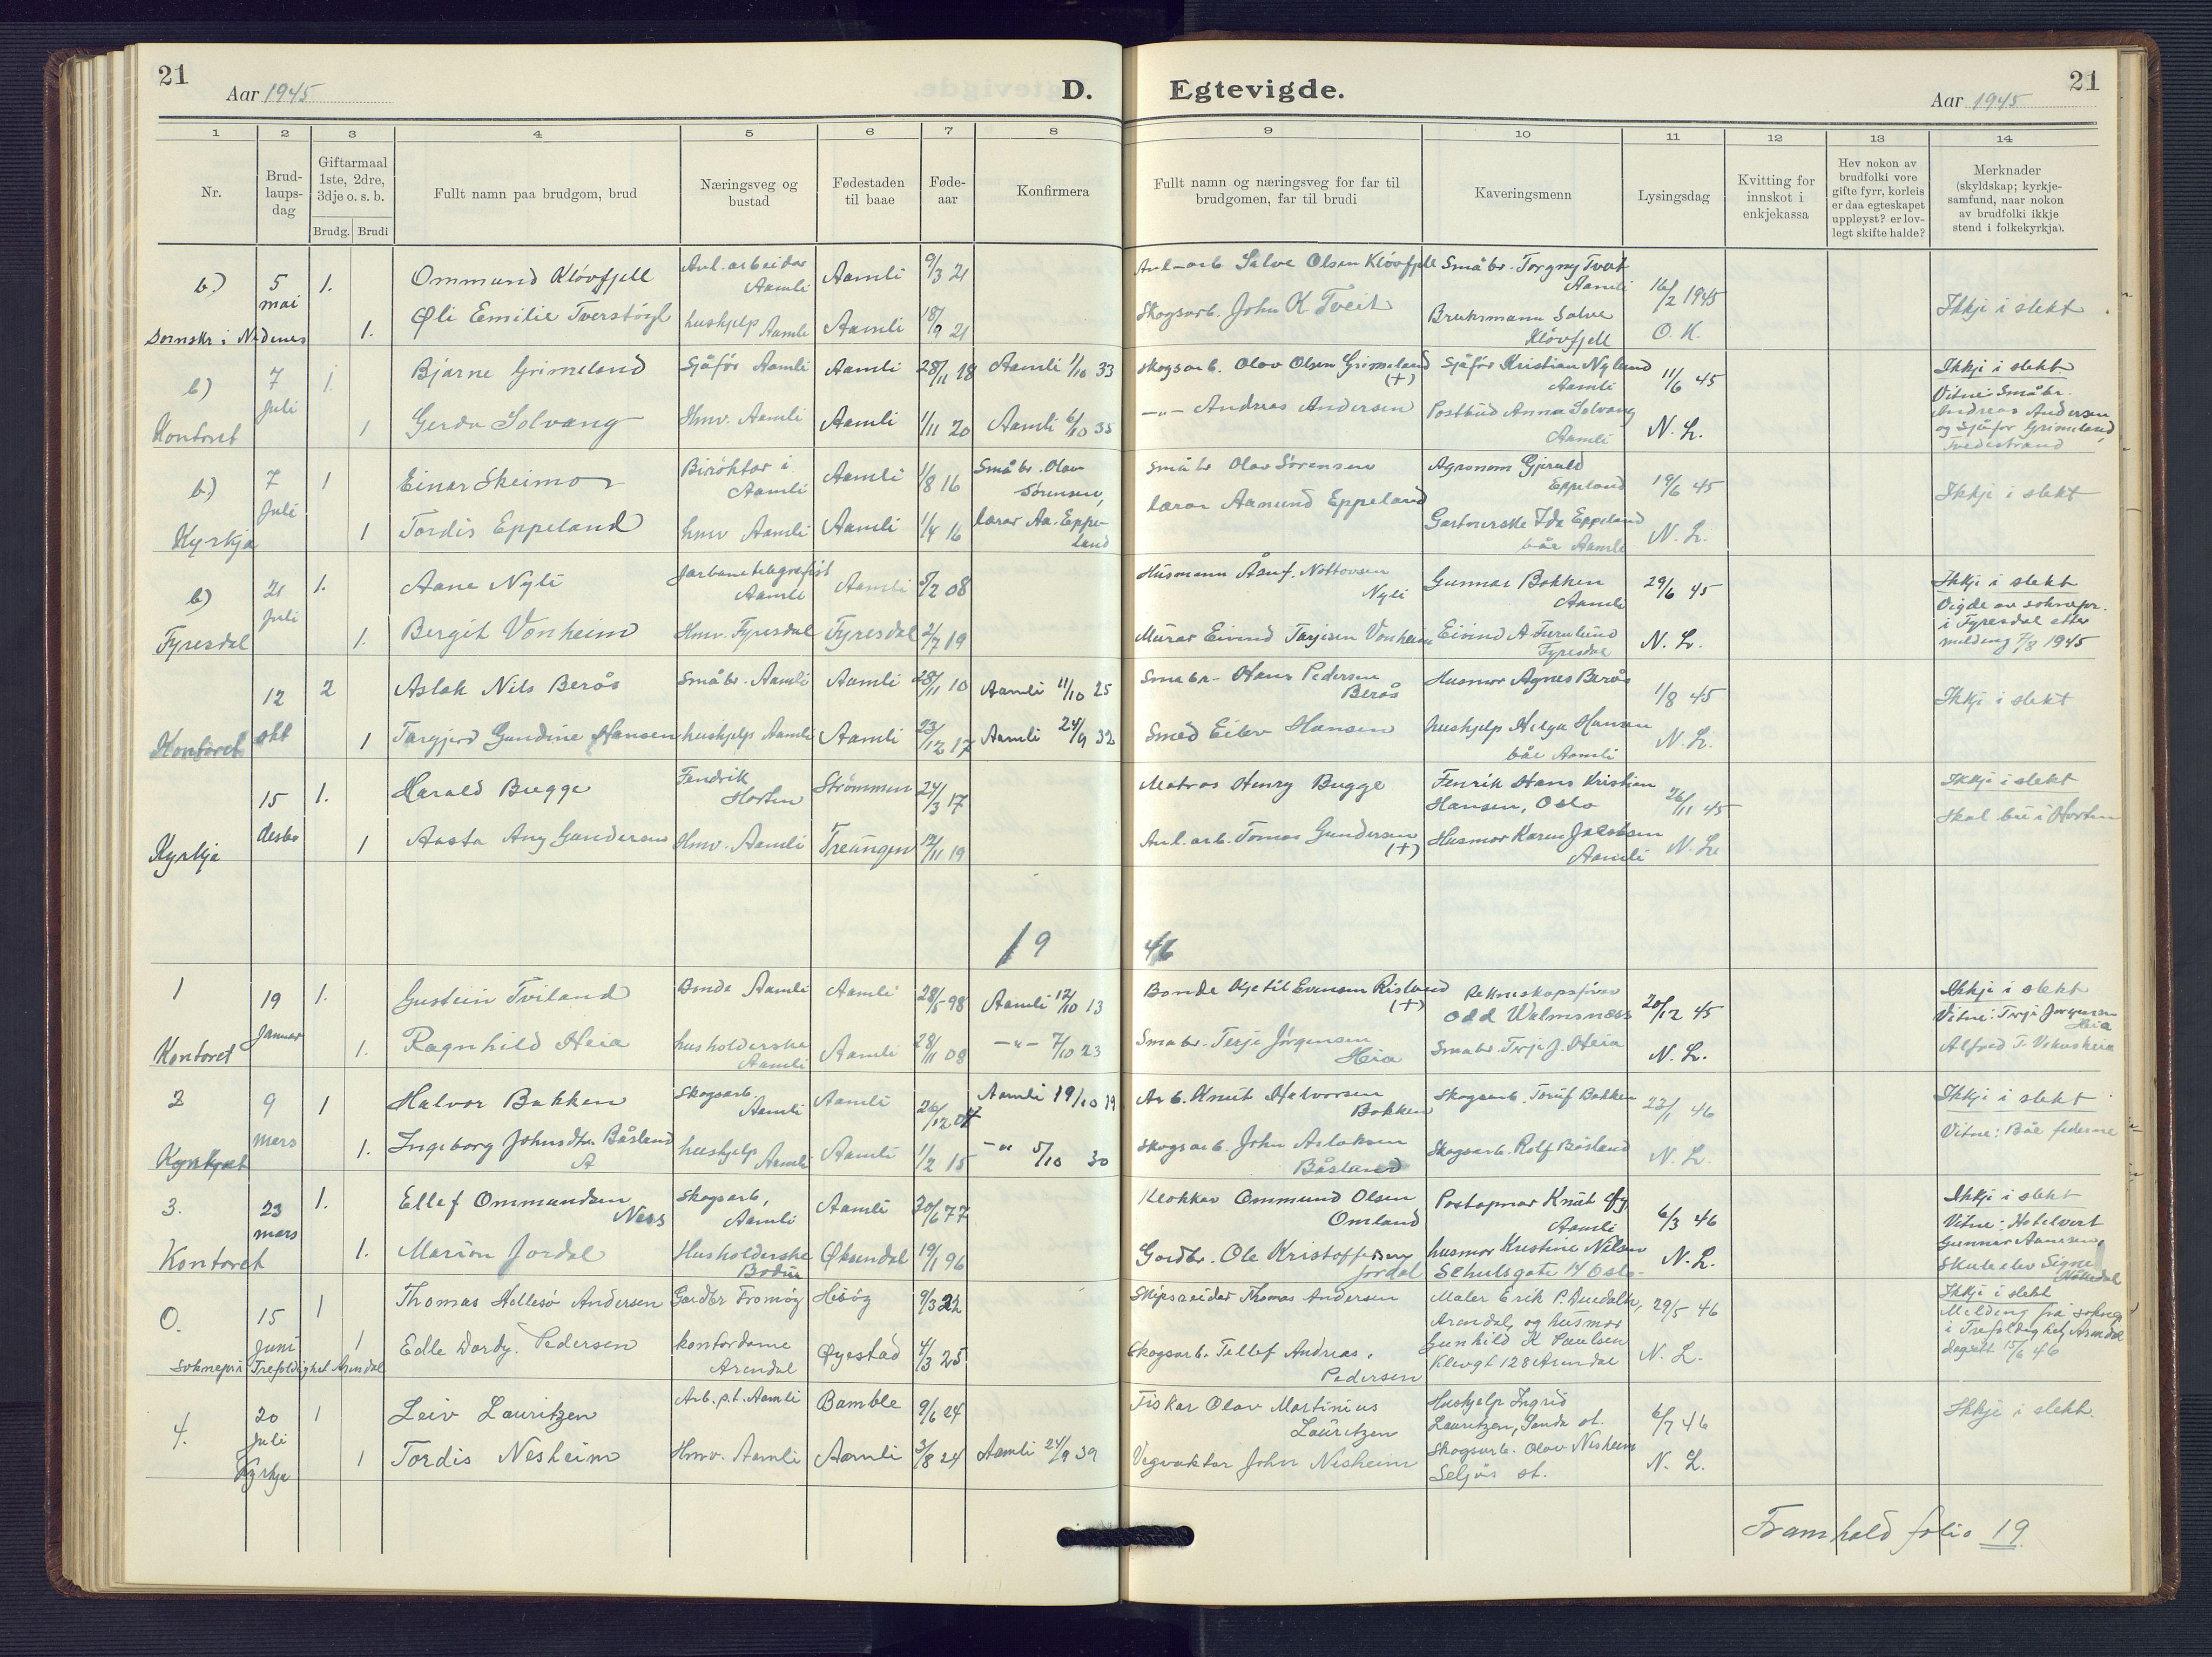 21
Aar 1945
D.
Egtevigde.
Aar 1945
21
1 2 3 4 5 6 7 8 9 10 11 12 13 14
Nr.
Brud-
laups-
dag
Giftarmaal
1ste, 2dre,
3dje o. s. b.
Brudg. Brudi
Fullt namn paa brudgom, brud
Næringsveg og
bustad
Fødestaden
til baae
Føde-
aar
Konfirmera
Fullt namn og næringsveg for far til
brudgomen, far til brudi
Kaveringsmenn
Lysingsdag
Kvitting for
innskot i
enkjekassa
Hev nokon av
brudfolki vore
gifte fyrr, korleis
er daa egteskapet
uppløyst? er lov-
legt skifte halde?
Merknader
(skyldskap; kyrkje-
samfund, naar nokon
av brudfolki ikkje
stend i folkekyrkja).
b) 5 mai 1. Ommund Kløvfjell Anl. arbeidar Aamli Aamli 9/3 21 Anl-arb Salve Olsen Kløvfjell Småbr. Torgny Tveit Aamli 16/2 1945 Ikkji i slekt
Sornskr i Nedenes 1. Øli Emilie Tverstøyl hushjelp Aamli Aamli 18/9 21 Skogsarb. John K Tveit Bruksmann Salve Kløvfjell O. K.
b) 7 Juli 1. Bjarne Grimeland Sjåfør Aamli Aamli 28/11 18 Aamli 1/10 33 Skogsarb. Olav Olsen Grimeland (+) Sjåfør Kristian Nyland Aamli 11/6 45 Ikkji i slekt.
Vitne: Småbr.
Andreas Andersen
og Sjåfør Grimeland,
Tvedestrand
Kontoret 1 Gerda Solvang Hmv. Aamli Aamli 1/11 20 Aamli 6/10 35 -"- Andreas Andersen Postbud Anna Solvang Aamli N. L.
b) 7 Juli 1 Einar Skeimo Birøktar i Aamli Aamli 1/8 16 Småbr. Olav Sørensen, Småbr Olav Sørensen Agronom Gjerald Eppeland 19/6 45 Ikkji i slekt
Kyrkja 1 Tordis Eppeland hmv Aamli Aamli 1/4 16 lærar Aa. Eppeland lærar Aamund Eppeland Gartnerske Ida Eppeland båe Aamli N. L.
b) 21 Juli 1. Aane Nyli Jarbanetelegrafist Aamli Aamli 5/2 08 Husmann Åsuf. Nottovsen Nyli Gunnar Bakken Aamli 29/6 45 Ikkji i slekt
Vigde av soknepr.
i Fyresdal etter
melding 7/8 1945
Fyresdal 1. Bergit Vonheim Hmv. Fyresdal Fyresdal 2/7 19 Murar Eivind Tarjeisen Vonheim Eivind A. Furulund Fyresdal N. L.
12 okt 2 Aslak Nils Berås Småbr. Aamli Aamli 28/11 10 Aamli 11/10 25 Småbr- Hans Pedersen Berås Husmor Agnes Berås 1/8 45 Ikkji i slekt
Kontoret 1 Targjerd Gundine Hansen hushjelp Aamli Aamli 23/12 17 Aamli 24/9 32 Smed Eilev Hansen hushjelp Helga Hansen båe Aamli N. L.
15 desbr 1. Harald Bugge Fendrik Horten Strømmen 24/3 17 Matros Henry Bugge Fenrik Hans Kristian Hansen, Oslo 26/11 45 Ikkji i slekt
Skal bu i Horten
Kyrkja 1 Aasta Any Gundersen Hmv. Aamli Treungen 12/11 19 Anl. arb. Tomas Gundersen (+) Husmor Karen Jacobsen Aamli N. L.
19 46
1 19 Januar 1. Gustein Tviland Bonde Aamli Aamli 28/5 98 Aamli 12/10 13 Bonde Kjetil Evensen Risland (+) Rekneskapsførar Odd Walmsness 20/12 45 Ikkji i slekt
Vitne: Terje Jørgensen Heia
Alfred T.
Kontoret 1. Ragnhild Heia husholderske Aamli Aamli 28/11 08 -"- 7/10 23 Småbr. Terje Jørgensen Heia Småbr. Terje J. Heia N. L.
2 9 mars 1 Halvor Bakken Skogsarb. Aamli Aamli 26/12 04 Aamli 19/10 19 Arb. Knut Halvorsen Bakken Skogsarb. Toruf Bakken 23/1 46 Ikkji i slekt
Vitne: Båe federne
1. Ingeborg Johnsdtr. Båsland hushjelp Aamli Aamli 1/2 15 -"- 5/10 30 Skogsarb. John Aslaksen Båsland Skogsarb. Rolf Båsland N. L.
3. 23 mars 1. Ellef Ommundsen Ness Skogsarb, Aamli Aamli 20/6 77 Klokkar Ommund Olsen Omland Postopnar Knut Aamli 6/3 46 Ikkji i slekt
Vitne: Hotelvert
Gunnar Aamlien,
Skuleelev Signe
Kontoret 1. Marion Jordal Husholderske Bodin Øksendal 19/1 96 Gardbr. Ole Kristoffersen Jordal husmor Kristine Nilsen Schulsgate 14 Oslo- N. L.
0. 15 Juni 1 Thomas Hellesø Andersen Gardbr Tromøy Hisøy 9/3 22 Skipsreidar Thomas Andersen Maler Erik P. Arendal, og husmor 29/5 46 Ikkji i slekt
Melding frå soknepr
i Trefoldighet, Arendal
dagsett 15/6 46
soknepr i Trefoldighet Arendal 1 Edle Dordy. Pedersen kontordame Arendal Øyestad 4/3 25 Skogsarb. Tellef Andreas. Pedersen Gunhild K Paulsen 128 Arendal N. L.
4. 20 Juli 1 Leiv Lauritzen Arb. p.t. Aamli Bamble 9/6 24 Fiskar Olav Martinius Lauritzen Hushjelp Ingrid Lauritzen, Sanda st. 6/7 46 Ikkji i slekt.
Kyrkja 1 Tordis Nesheim Hmv. Aamli Aamli 3/8 24 Aamli 24/9 39 Vegvaktar John Nesheim Skogsarb. Olav Nesheim Seljås st. N. L.
Framhald folio 19.